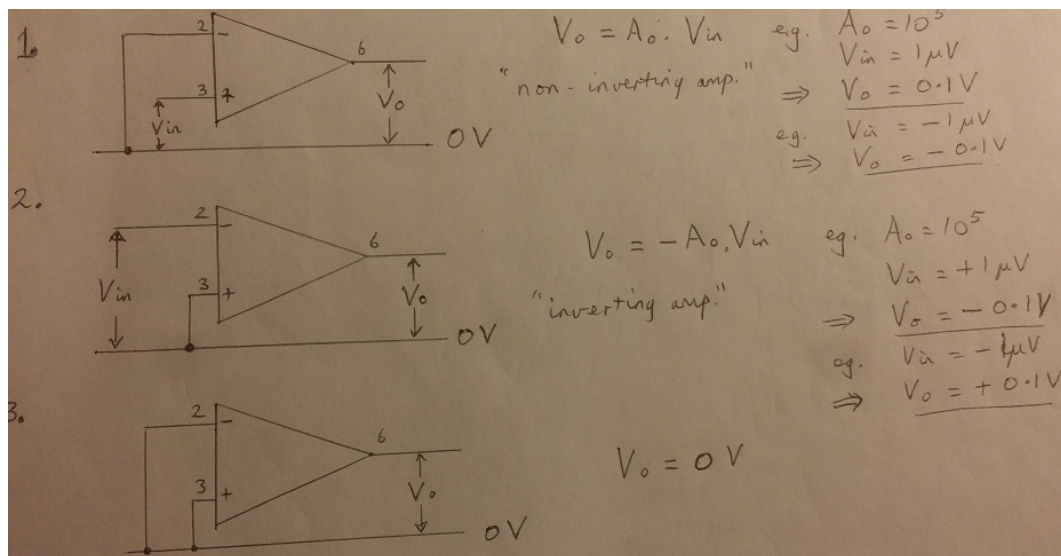 1.
2
-
3
+
6
Vin
Vo
0V
Vo = Ao. Vin
"non-inverting amp."
eg. Ao = 10⁵
Vin = 1μV
⇒ Vo = 0.1V
eg. Vin = -1μV
⇒ Vo = -0.1V
2.
2
-
3
+
6
Vin
Vo
0V
Vo = -Ao.Vin
"inverting amp."
eg. Ao = 10⁵
Vin = +1μV
⇒ Vo = -0.1V
eg. Vin = -1μV
⇒ Vo = +0.1V
3.
2
-
3
+
6
Vo
0V
Vo = 0V